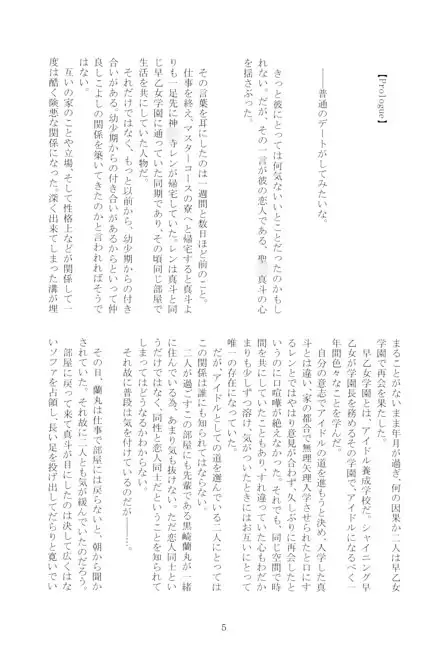 【Prologue】
――普通のデートがしてみたいな。
きっと彼にとっては何気ないいことだったのかもし
れない。だが、その一言が彼の恋人である、聖 真斗の心
を揺さぶった。
その言葉を耳にしたのは一週間と数日ほど前のこと。
仕事を終え、マスターコースの寮へと帰宅すると真斗よ
りも一足先に神 寺レンが帰宅していた。レンは真斗と同
じ早乙女学園に通っていた同期であり、その頃同じ部屋で
生活を共にしていた人物だ。
それだけではなく、もっと以前から、幼少期からの付き
合いがある。幼少期からの付き合いがあるからといって仲
良しこよしの関係を築いてきたのかと言われればそうで
はない。
互いの家のことや立場、そして性格上などが関係して一
度は酷く険悪な関係になった。深く出来てしまった溝が埋
まることがないまま年月が過ぎ、何の因果か二人は早乙女
学園で再会を果たした。
早乙女学園とは、アイドル養成学校だ。シャイニング早
乙女が学園長を務めるその学園で、アイドルになるべく一
年間色々なことを学んだ。
自分の意志でアイドルの道を進もうと決め、入学した真
斗とは違い、家の都合で無理矢理入学させられたと口にす
るレンとではやはり意見が合わず、久しぶりに再会したと
いうのに口喧嘩が絶えなかった。それでも、同じ空間で時
間を共にしていたこともあり、すれ違っていた心もわだか
まりも少しずつ溶け、気がついたときにはお互いにとって
唯一の存在になっていた。
だが、アイドルとしての道を選んでいる二人にとっては
この関係は誰にも知られてはならない。
二人が過ごすこの部屋にも先輩である黒崎蘭丸が一緒
に住んでいる為、あまり気も抜けない。ただ恋人同士とい
うだけではなく、同性と恋人同士だということを知られて
しまってはどうなるかわからない。
それ故に普段は気を付けているのだが――…。
その日、蘭丸は仕事で部屋には戻らないと、朝から聞か
されていた。それ故に二人とも気が緩んでいたのだろう。
部屋に戻って来て真斗が目にしたのは決して広くはな
いソファを占領し、長い足を投げ出してだらりと寛いでい
5